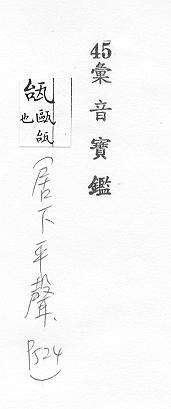 45彙音寶鑑
瓵
甌瓵
也
(居下平聲、P524)